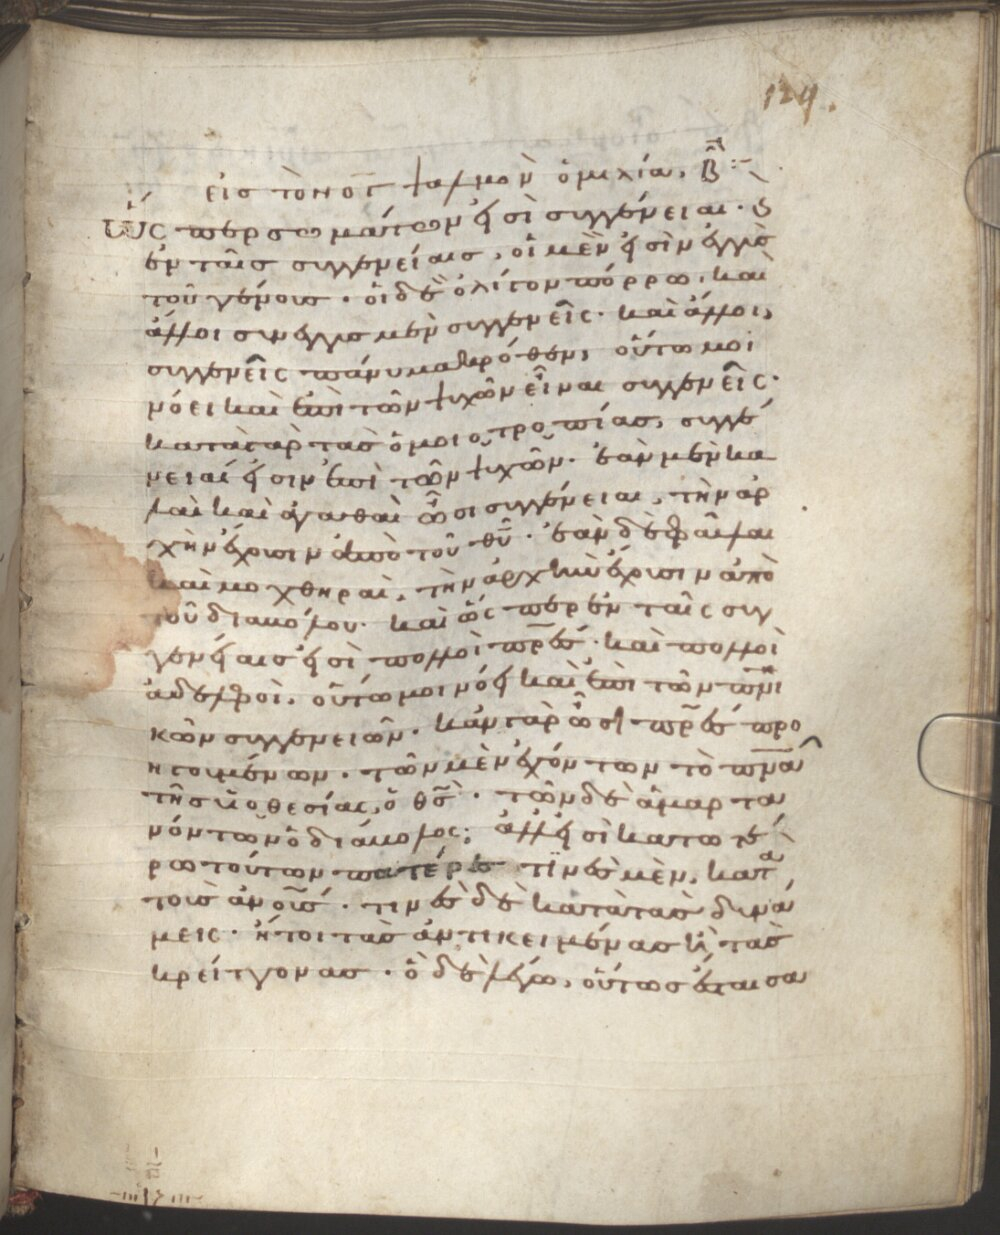 129.
εἰσ τὸν οϛ ψαλμὸν ὁμιλία. Β̅
Ὥς περ σωμάτων εἰσὶ συγγένειαι·
ἐν ταῖσ συγγενείαισ, οἱ μὲν εἰσὶν ἐγγὺσ
τοῦ γένουσ· οἱ δὲ ὀλίγον πόρρω, καὶ
ἄλλοι σύνεγγυσ μὲν συγγενεῖς· καὶ ἄλλοι,
συγγενεῖς πάνυ μακρόθεν, οὕτω μοι
νόει καὶ ἐπὶ τῶν ψυχῶν εἶναι συγγενεῖς·
κατὰ γὰρ τὰσ ὁμοιοτροπίασ, συγγέ
νειαί εἰσιν ἐπὶ τῶν ψυχῶν· ἐὰν μὲν κα
λαὶ καὶ ἀγαθαὶ ὦσι συγγένειαι, τὴν ἀρ
χὴν ἔχουσιν ἀπὸ τοῦ θυ̅· ἐὰν δὲ φαῦλαι
καὶ μοχθηραὶ, τὴν ἀρχὴν ἔχουσιν ἀπὸ
τοῦ διαβόλου· καὶ ὥς περ ἐν ταῖς συγ
γενείαισ εἰσὶ πολλοὶ πρ̅εσ· καὶ πολλοὶ
ἀδελφοὶ, οὕτω μοι νόει καὶ ἐπὶ τῶν πν̅ι
κῶν συγγενειῶν· κἂν γὰρ ὦσι πρ̅εσ προ
ηγουμένων· τῶν μὲν ἐχόντων τὸ πν̅α
τῆσ υἱοθεσίασ, ὁ θσ̅· τῶν δὲ ἁμαρτα
νόντων ὁ διάβολος· ἀλλ' εἰσὶ κατωτέ
ρω τούτων πατέρεσ τινὲσ μὲν, κατὰ
τοὺσ ἀνο̅υσ· τινὲσ δὲ κατὰ τὰσ δυνά
μεις· ἤτοι τὰσ ἀντικειμένασ ἢ τὰσ
κρείττονασ· ὃ δὲ λέγω, οὕτωσ ἔσται σα